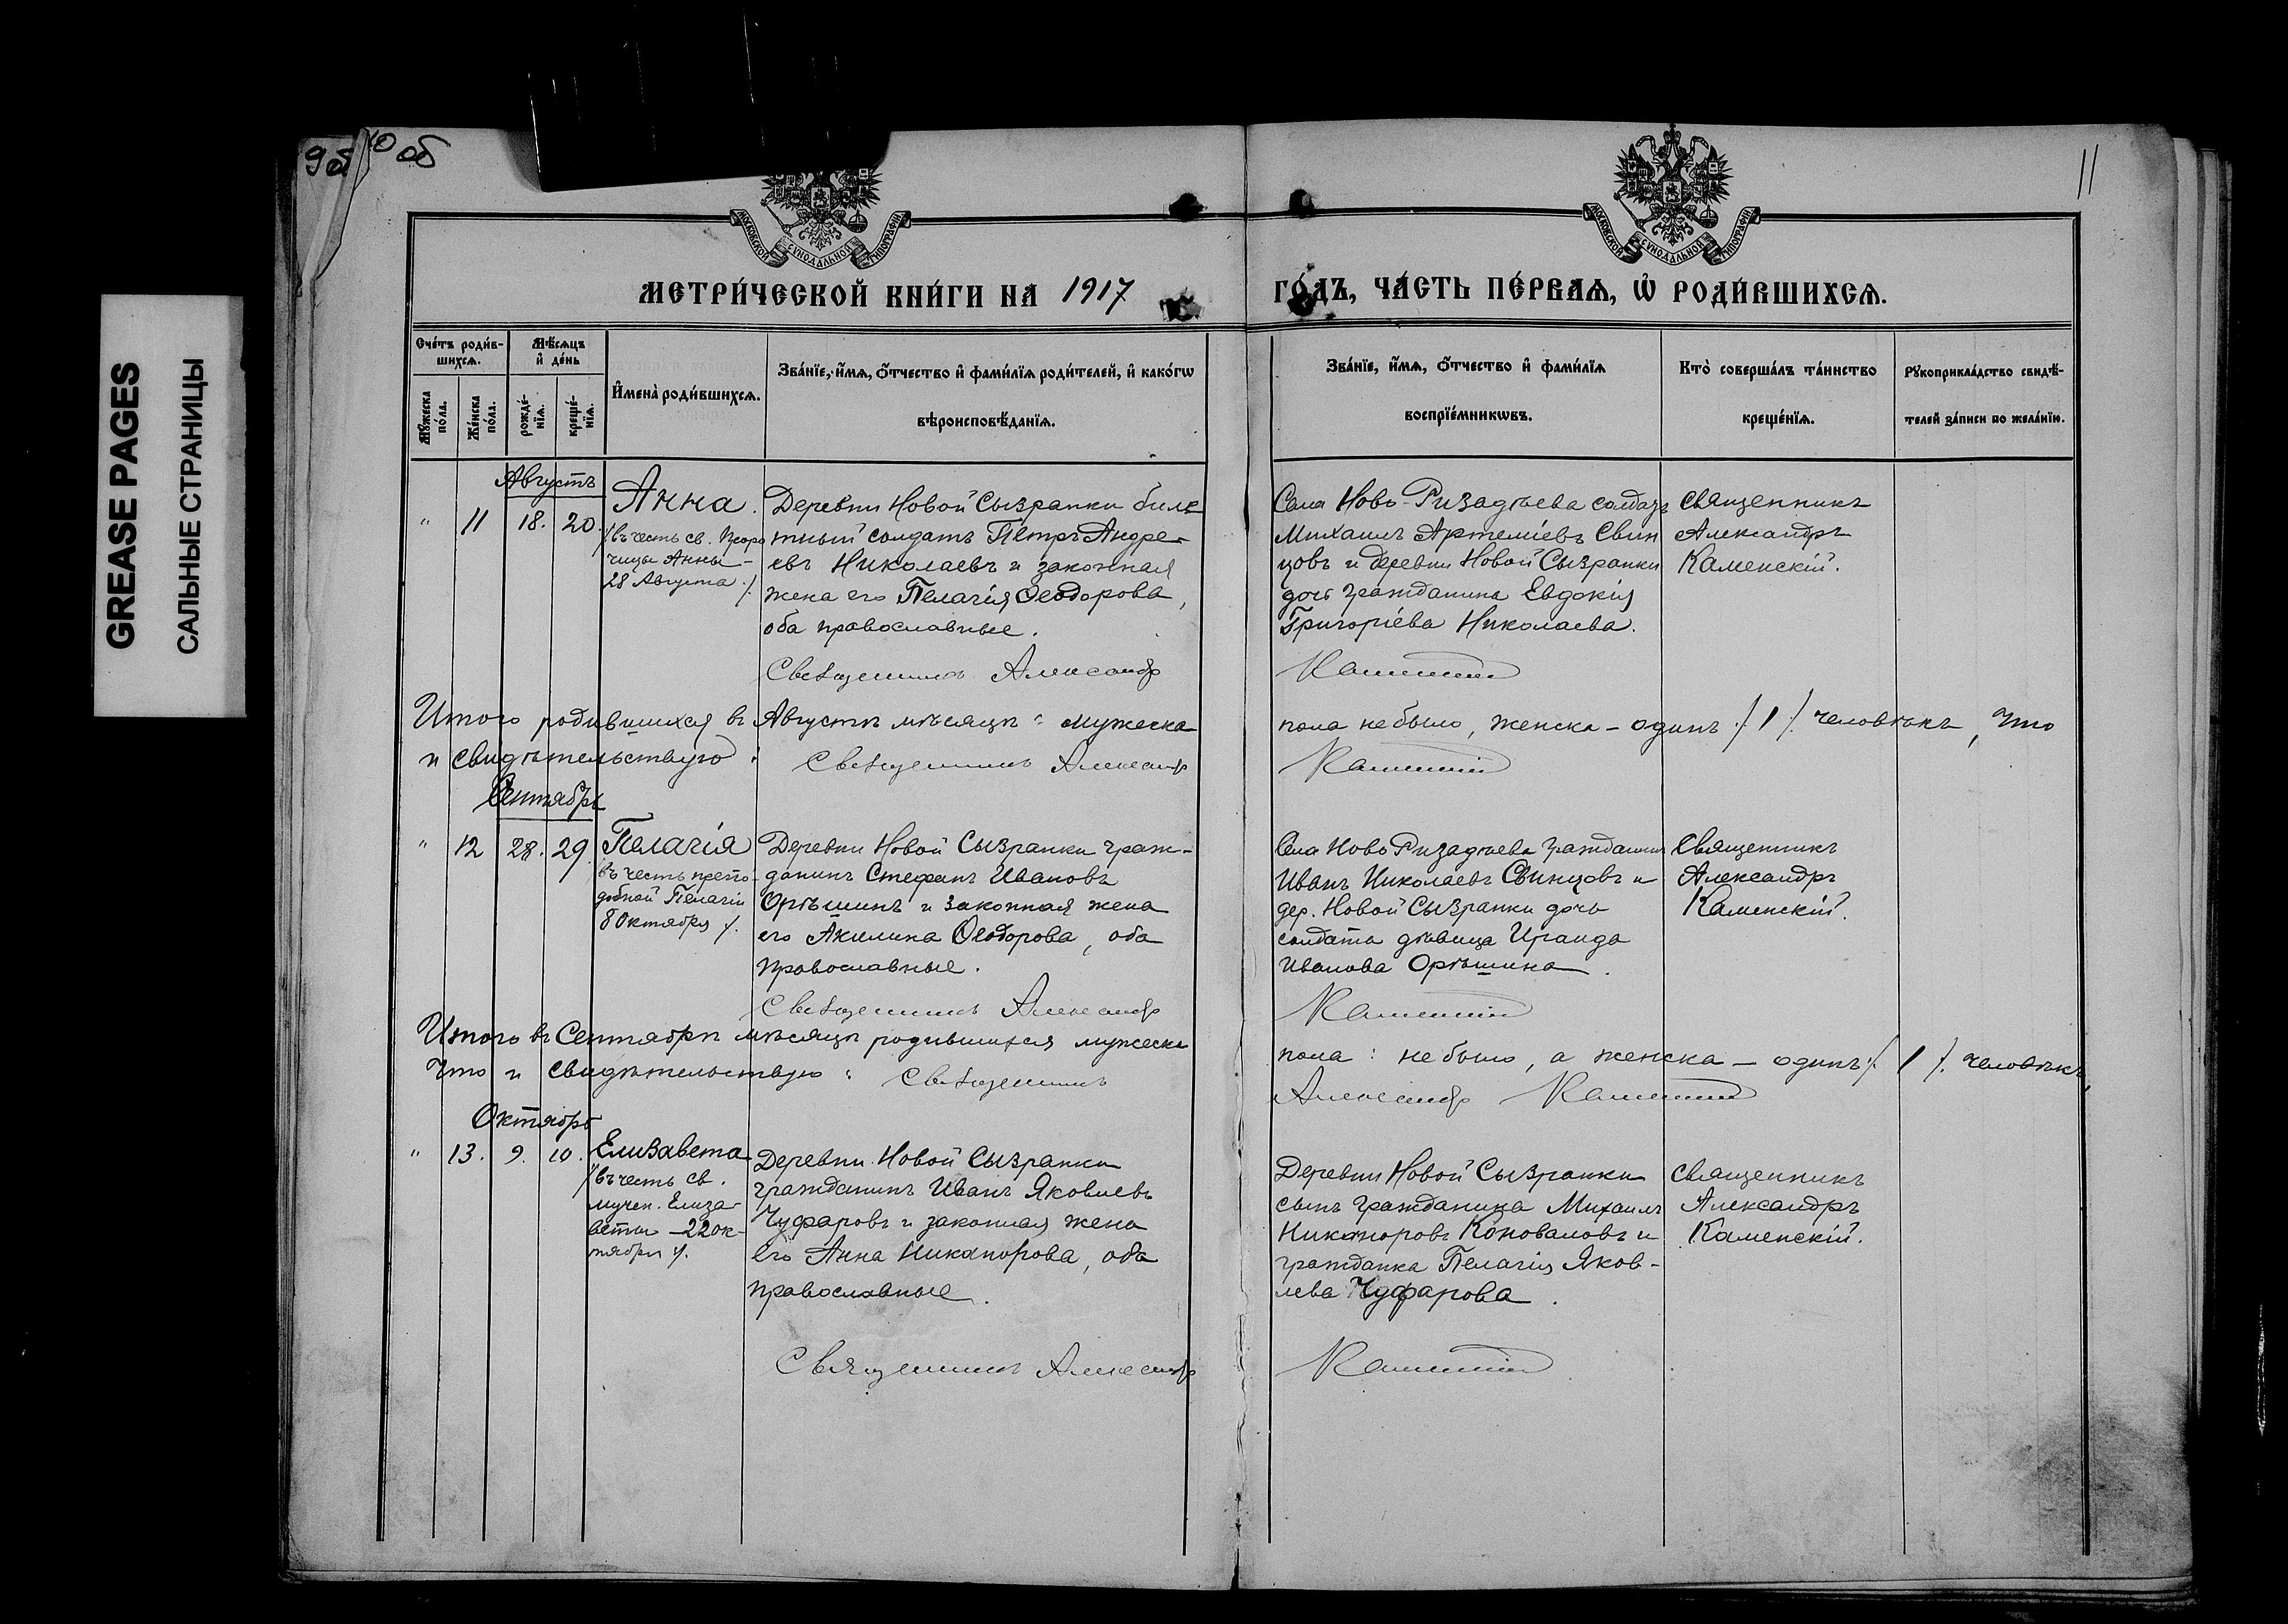 9 об 10 об
11
GREASE PAGES
САЛЬНЫЕ СТРАНИЦЫ
МОСКОВСКОЙ СѴНОДАЛЬНОЙ ТИПОГРАФІИ
МОСКОВСКОЙ СѴНОДАЛЬНОЙ ТИПОГРАФІИ
МЕТРИ́ЧЕСКОЙ КНИ́ГИ НА 1917
ГО́ДЪ, ЧА́СТЬ ПЕ́РВАѦ, Ѡ҆ РОДИ́ВШИХСѦ.
Сче́тъ роди́в-
шихсѧ.
Мѣ́сѧцъ
и҆ де́нь
Мꙋ́жеска
по́ла.
Же́нска
по́ла.
рожде́-
нїѧ.
креще́-
нїѧ.
И҆мена̀ роди́вшихсѧ.
Зва́нїе, и҆́мѧ, ѻ҆́тчество и҆ фами́лїѧ роди́телей, и҆ како́гѡ
вѣроисповѣ́данїѧ.
Зва́нїе, и҆́мѧ, ѻ҆́тчество и҆ фами́лїѧ
воспрїе́мникѡвъ.
Кто̀ соверша́лъ та́инство
креще́нїѧ.
Рꙋкоприкла́дство свидѣ́-
телей за́писи по жела́нїю.
Августъ
" 11 18. 20.
Анна.
/въ честь св. Проро
чицы Анны –
28 Августа./.
Деревни Новой Сызранки биле
тный солдатъ Петръ Андре-
евъ Николаевъ и законная
жена его Пелагія Ѳеодорова,
оба православные.
Священникъ Александръ
Села Ново-Ризадѣева солдатъ
Михаилъ Артеміевъ Свин
цовъ и деревни Новой Сызранки
дочь гражданина Евдокія
Григоріева Николаева.
Каменскій
Священникъ
Александръ
Каменскій.
Итого родившихся въ Августѣ мѣсяцѣ: мужеска
пола не было, женска – одинъ /. 1 /. человѣкъ, что
и свидѣтельствую: Священникъ Александръ
Каменскій
Сентябрь
" 12 28. 29.
Пелагія
въ честь препо-
добной Пелагіи
8 Октября /.
Деревни Новой Сызранки граж-
данинъ Стефанъ Ивановъ
Орѣшинъ и законная жена
его Акилина Ѳеодорова, оба
православные.
Священникъ Александръ
Села Ново Ризадѣева гражданинъ
Иванъ Николаевъ Свинцовъ и
дер. Новой Сызранки дочь
солдата дѣвица Ираида
Иванова Орѣшина.
Каменскій
Священникъ
Александръ
Каменскій.
Итого въ Сентябрѣ мѣсяцѣ родившихся мужеска
пола: не было, а женска – одинъ /. 1 /. человѣкъ,
Что и свидѣтельствую: Священникъ
Александръ Каменскій
Октябрь
" 13. 9. 10.
Елизавета
/въ честь св.
мучен. Елиза-
веты – 22 ок-
тября /.
Деревни Новой Сызранки
гражданинъ Иванъ Яковлевъ
Чуфаровъ и законная жена
его Анна Никанорова, оба
православные.
Священникъ Александръ
Деревни Новой Сызранки
сынъ гражданина Михаилъ
Никаноровъ Коноваловъ и
гражданка Пелагія Яков-
лева Чуфарова.
Каменскій
Священникъ
Александръ
Каменскій.